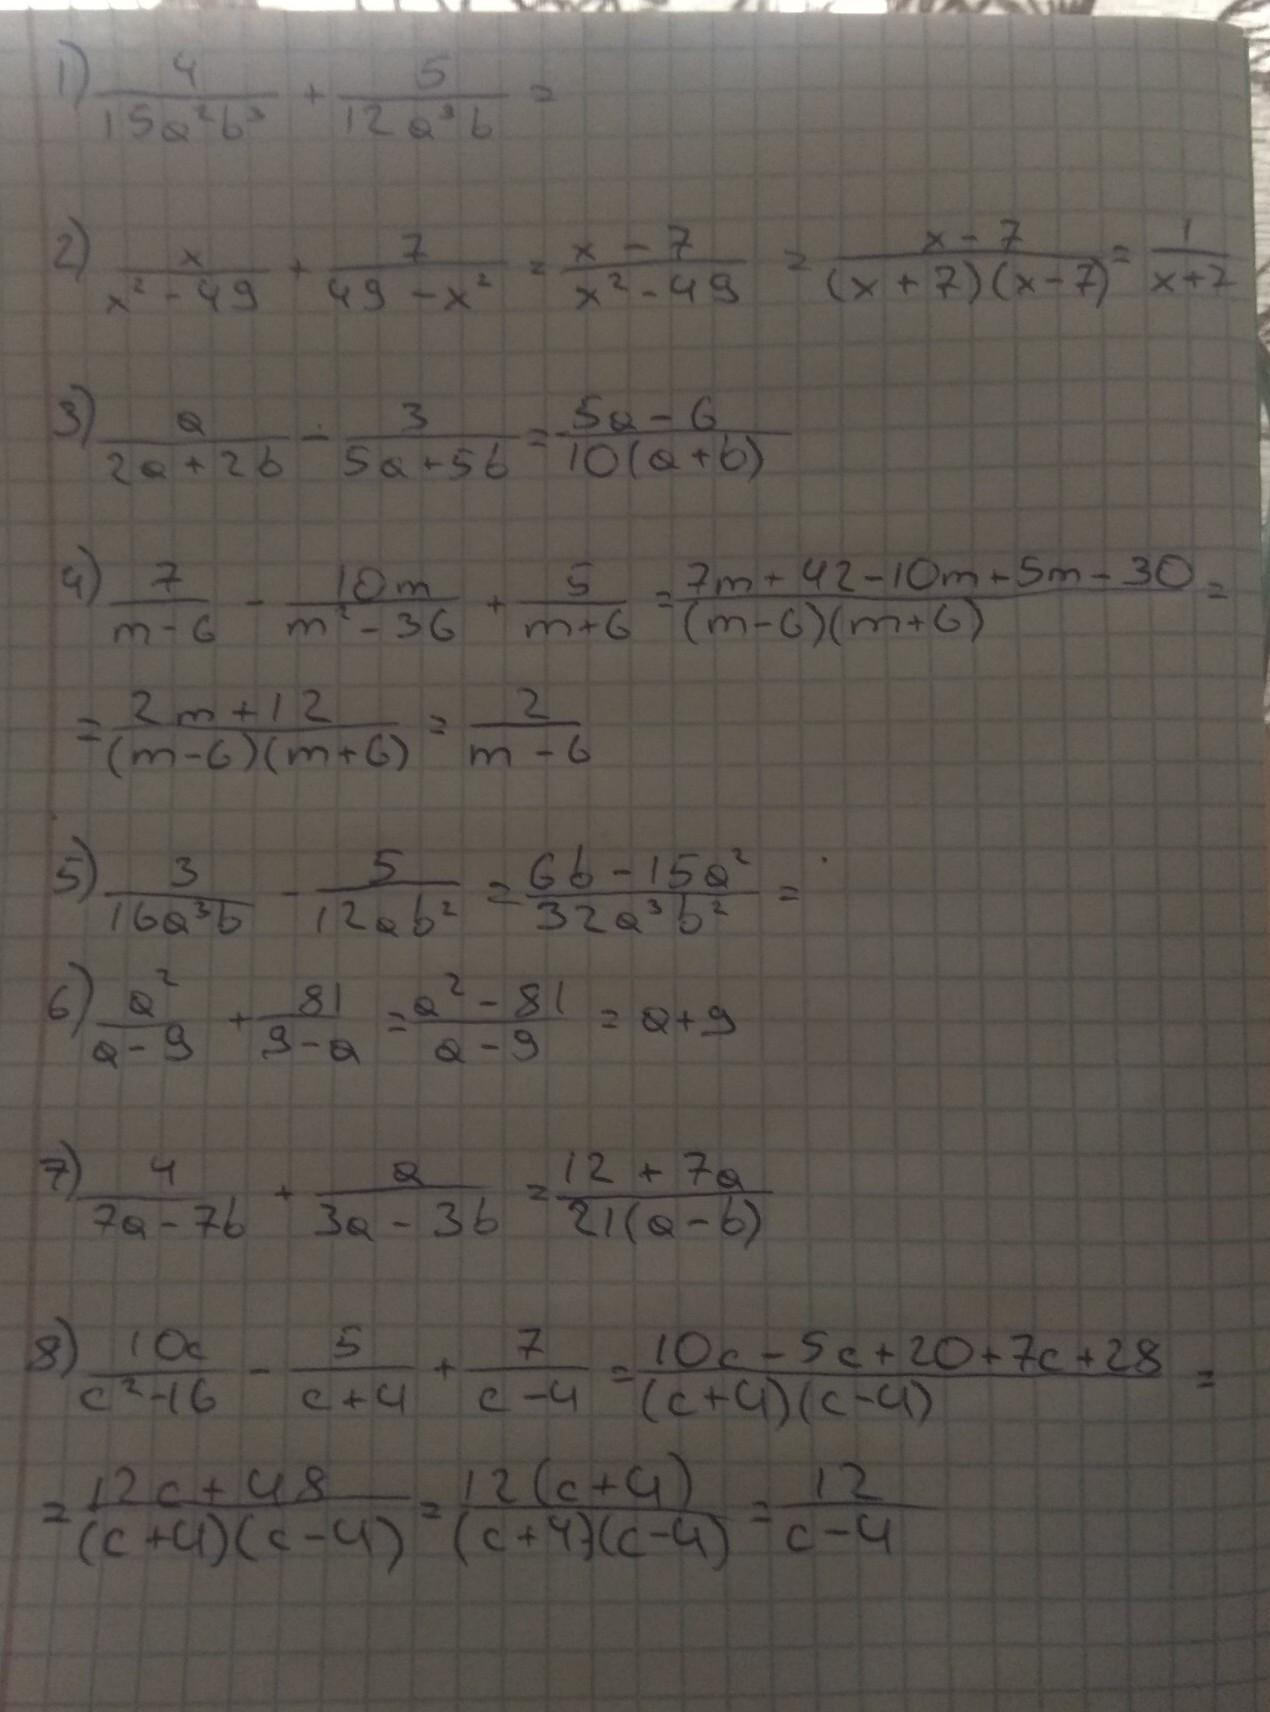 1) 4/(15a²b³) + 5/(12a³b) =
2) x/(x² - 49) + 7/(49 - x²) = (x - 7)/(x² - 49) = (x - 7)/((x + 7)(x - 7)) = 1/(x + 7)
3) a/(2a + 2b) - 3/(5a + 5b) = (5a - 6)/(10(a + b))
4) 7/(m - 6) - 10m/(m² - 36) + 5/(m + 6) = (7m + 42 - 10m + 5m - 30)/((m - 6)(m + 6)) =
= (2m + 12)/((m - 6)(m + 6)) = 2/(m - 6)
5) 3/(16a³b) - 5/(12ab²) = (6b - 15a²)/(32a³b²) =
6) a²/(a - 9) + 81/(9 - a) = (a² - 81)/(a - 9) = a + 9
7) 4/(7a - 7b) + a/(3a - 3b) = (12 + 7a)/(21(a - b))
8) 10c/(c² - 16) - 5/(c + 4) + 7/(c - 4) = (10c - 5c + 20 + 7c + 28)/((c + 4)(c - 4)) =
= (12c + 48)/((c + 4)(c - 4)) = 12(c + 4)/((c + 4)(c - 4)) = 12/(c - 4)